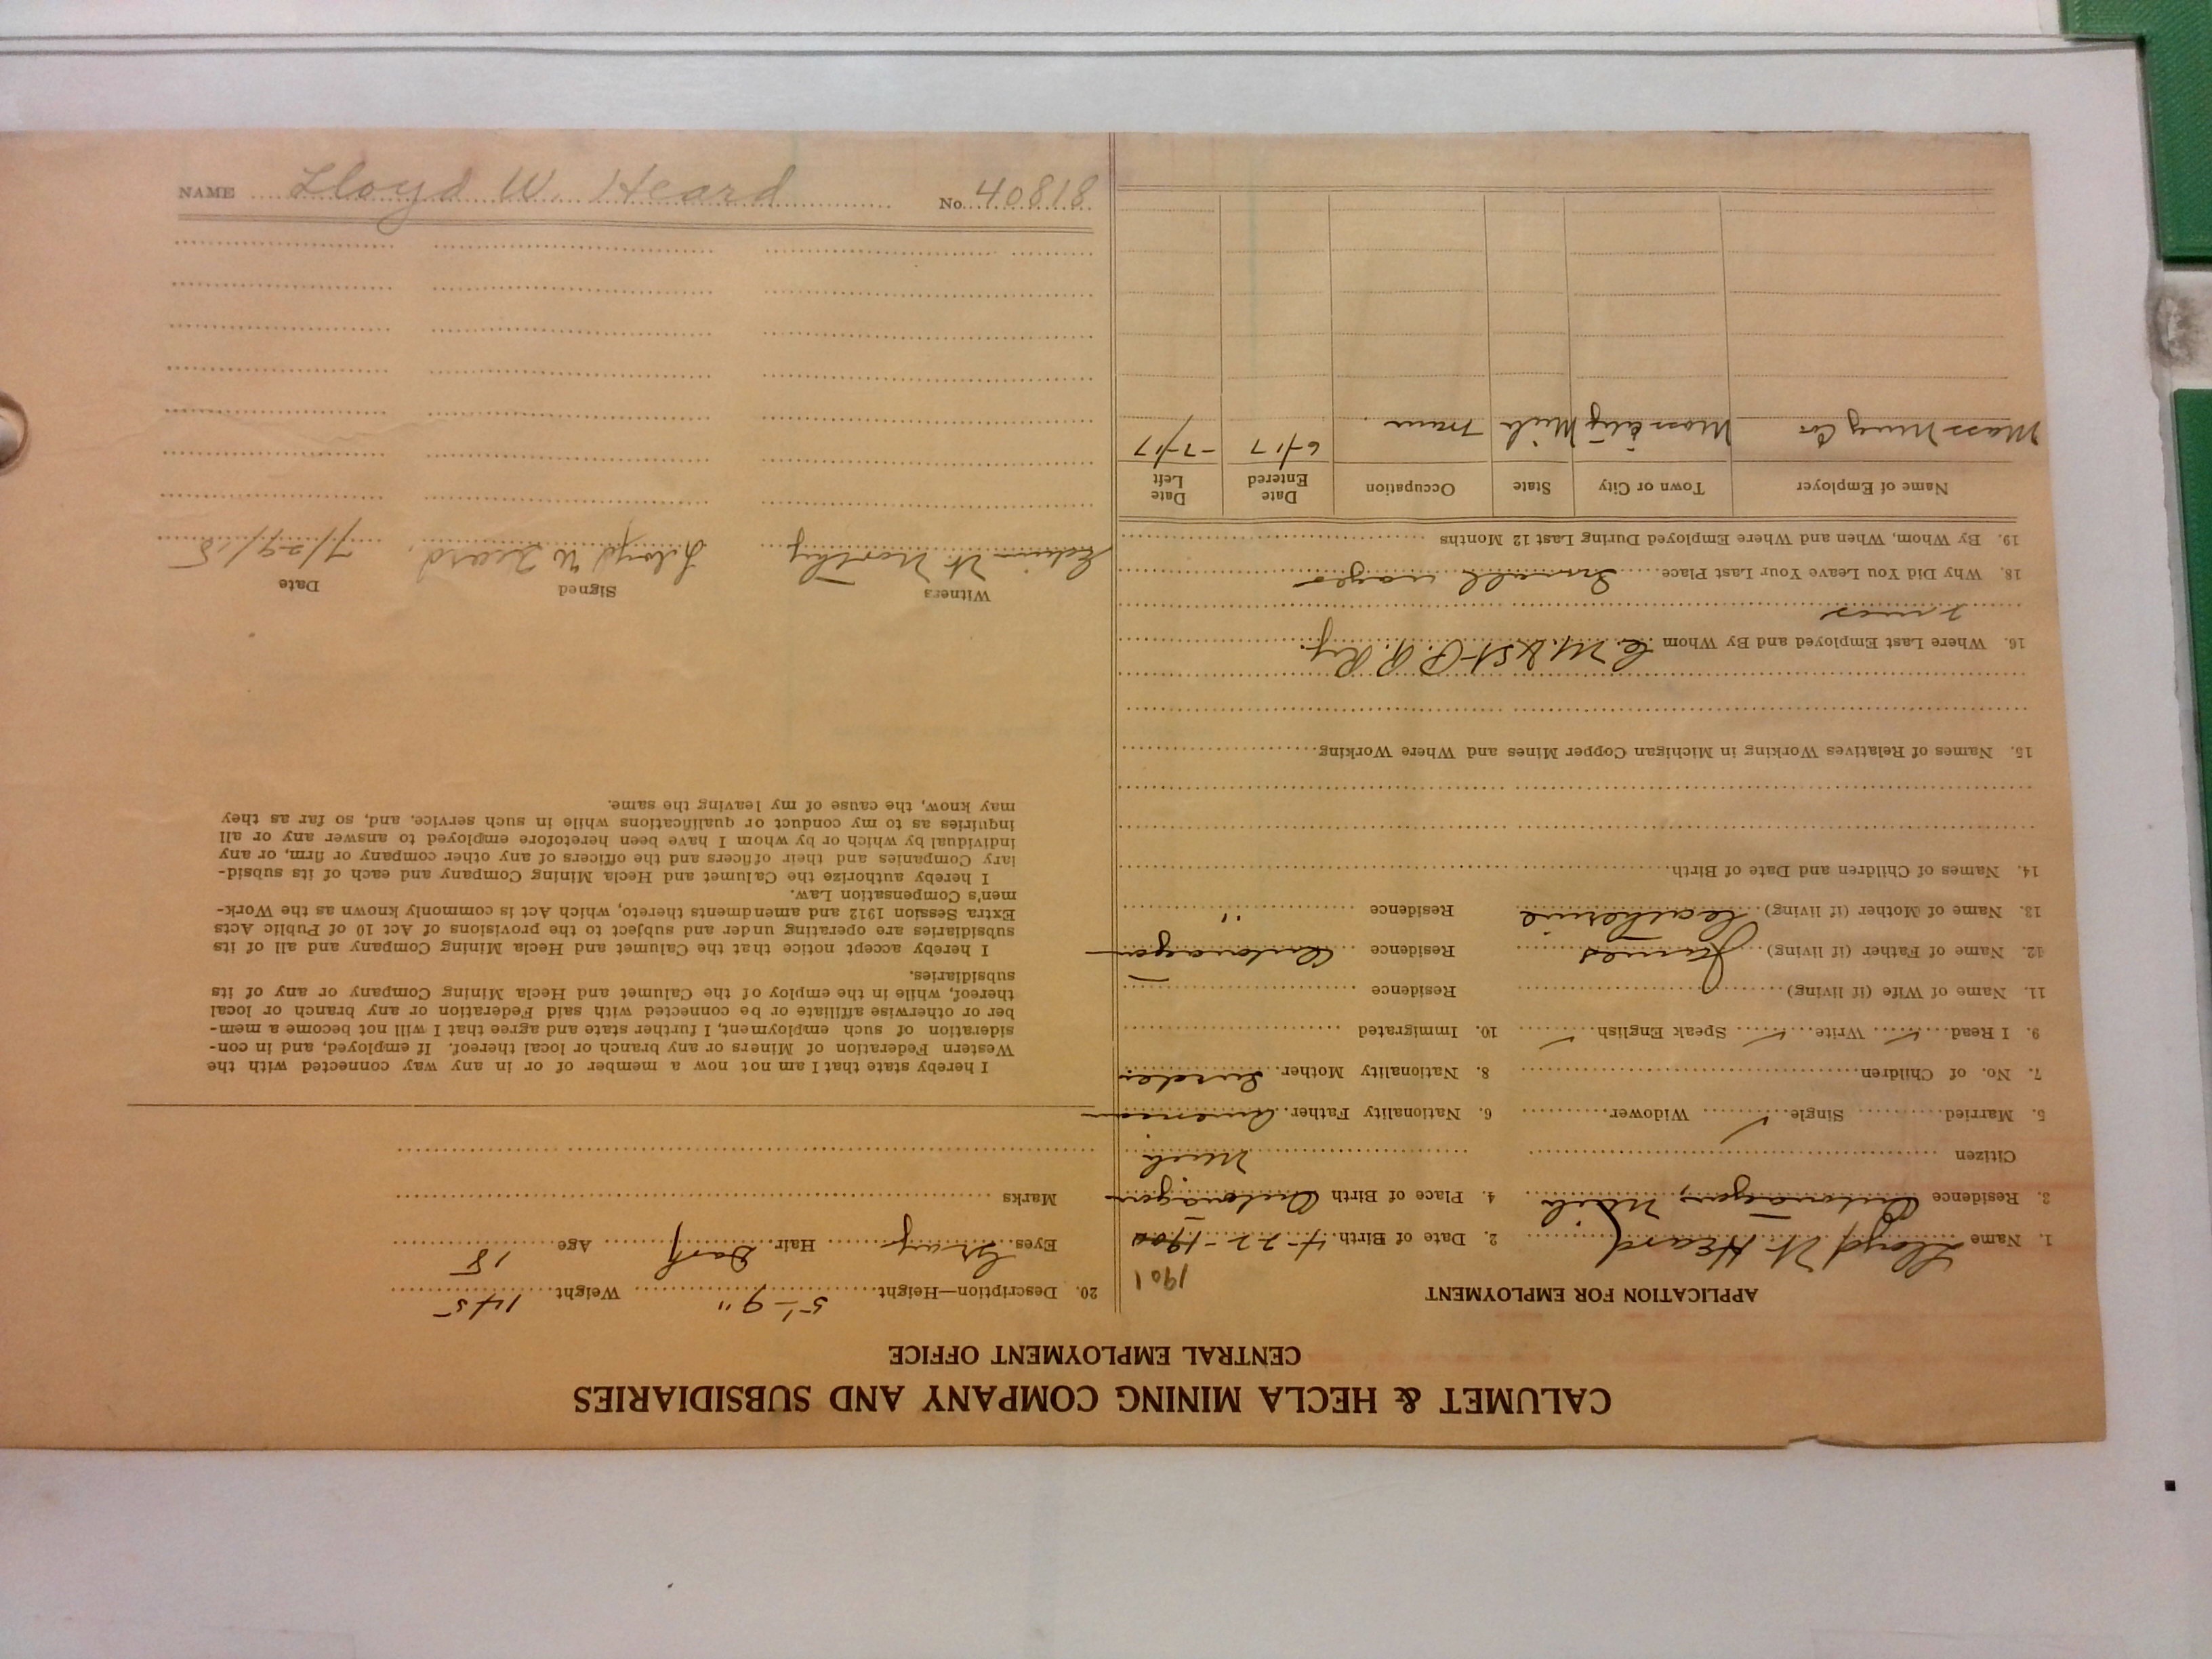 CALUMET & HECLA MINING COMPANY AND SUBSIDIARIES
CENTRAL EMPLOYMENT OFFICE
APPLICATION FOR EMPLOYMENT
1901
1. Name Lloyd W Heard 2. Date of Birth 4-22-1900
3. Residence Ontonagon, Mich 4. Place of Birth Ontonagon
Citizen Mich.
5. Married Single ✓ Widower 6. Nationality Father American
7. No. of Children 8. Nationality Mother
9. I Read ✓ Write ✓ Speak English ✓ 10. Immigrated
11. Name of Wife (if living) Residence
12. Name of Father (if living) James Residence Ontonagon
13. Name of Mother (if living) Catherine Residence "
14. Names of Children and Date of Birth
15. Names of Relatives Working in Michigan Copper Mines and Where Working
16. Where Last Employed and By Whom C. M. & St. P. R. Ry.
18. Why Did You Leave Your Last Place Small wages
19. By Whom, When and Where Employed During Last 12 Months
Name of Employer Town or City State Occupation Date Entered Date Left
Mass Mining Co Mass City Mich Tram 6/17 -7/17
20. Description—Height 5'-9" Weight 145
Eyes Gray Hair Dark Age 18
Marks
I hereby state that I am not now a member of or in any way connected with the
Western Federation of Miners or any branch or local thereof. If employed, and in con-
sideration of such employment, I further state and agree that I will not become a mem-
ber or otherwise affiliate or be connected with said Federation or any branch or local
thereof, while in the employ of the Calumet and Hecla Mining Company or any of its
subsidiaries.
I hereby accept notice that the Calumet and Hecla Mining Company and all of its
subsidiaries are operating under and subject to the provisions of Act 10 of Public Acts
Extra Session 1912 and amendments thereto, which Act is commonly known as the Work-
men's Compensation Law.
I hereby authorize the Calumet and Hecla Mining Company and each of its subsid-
iary Companies and their officers and the officers of any other company or firm, or any
individual by which or by whom I have been heretofore employed to answer any or all
inquiries as to my conduct or qualifications while in such service, and, so far as they
may know, the cause of my leaving the same.
Witness Signed Date
Edwin W. Northey Lloyd W Heard. 7/29/18
NAME Lloyd W. Heard No. 40818